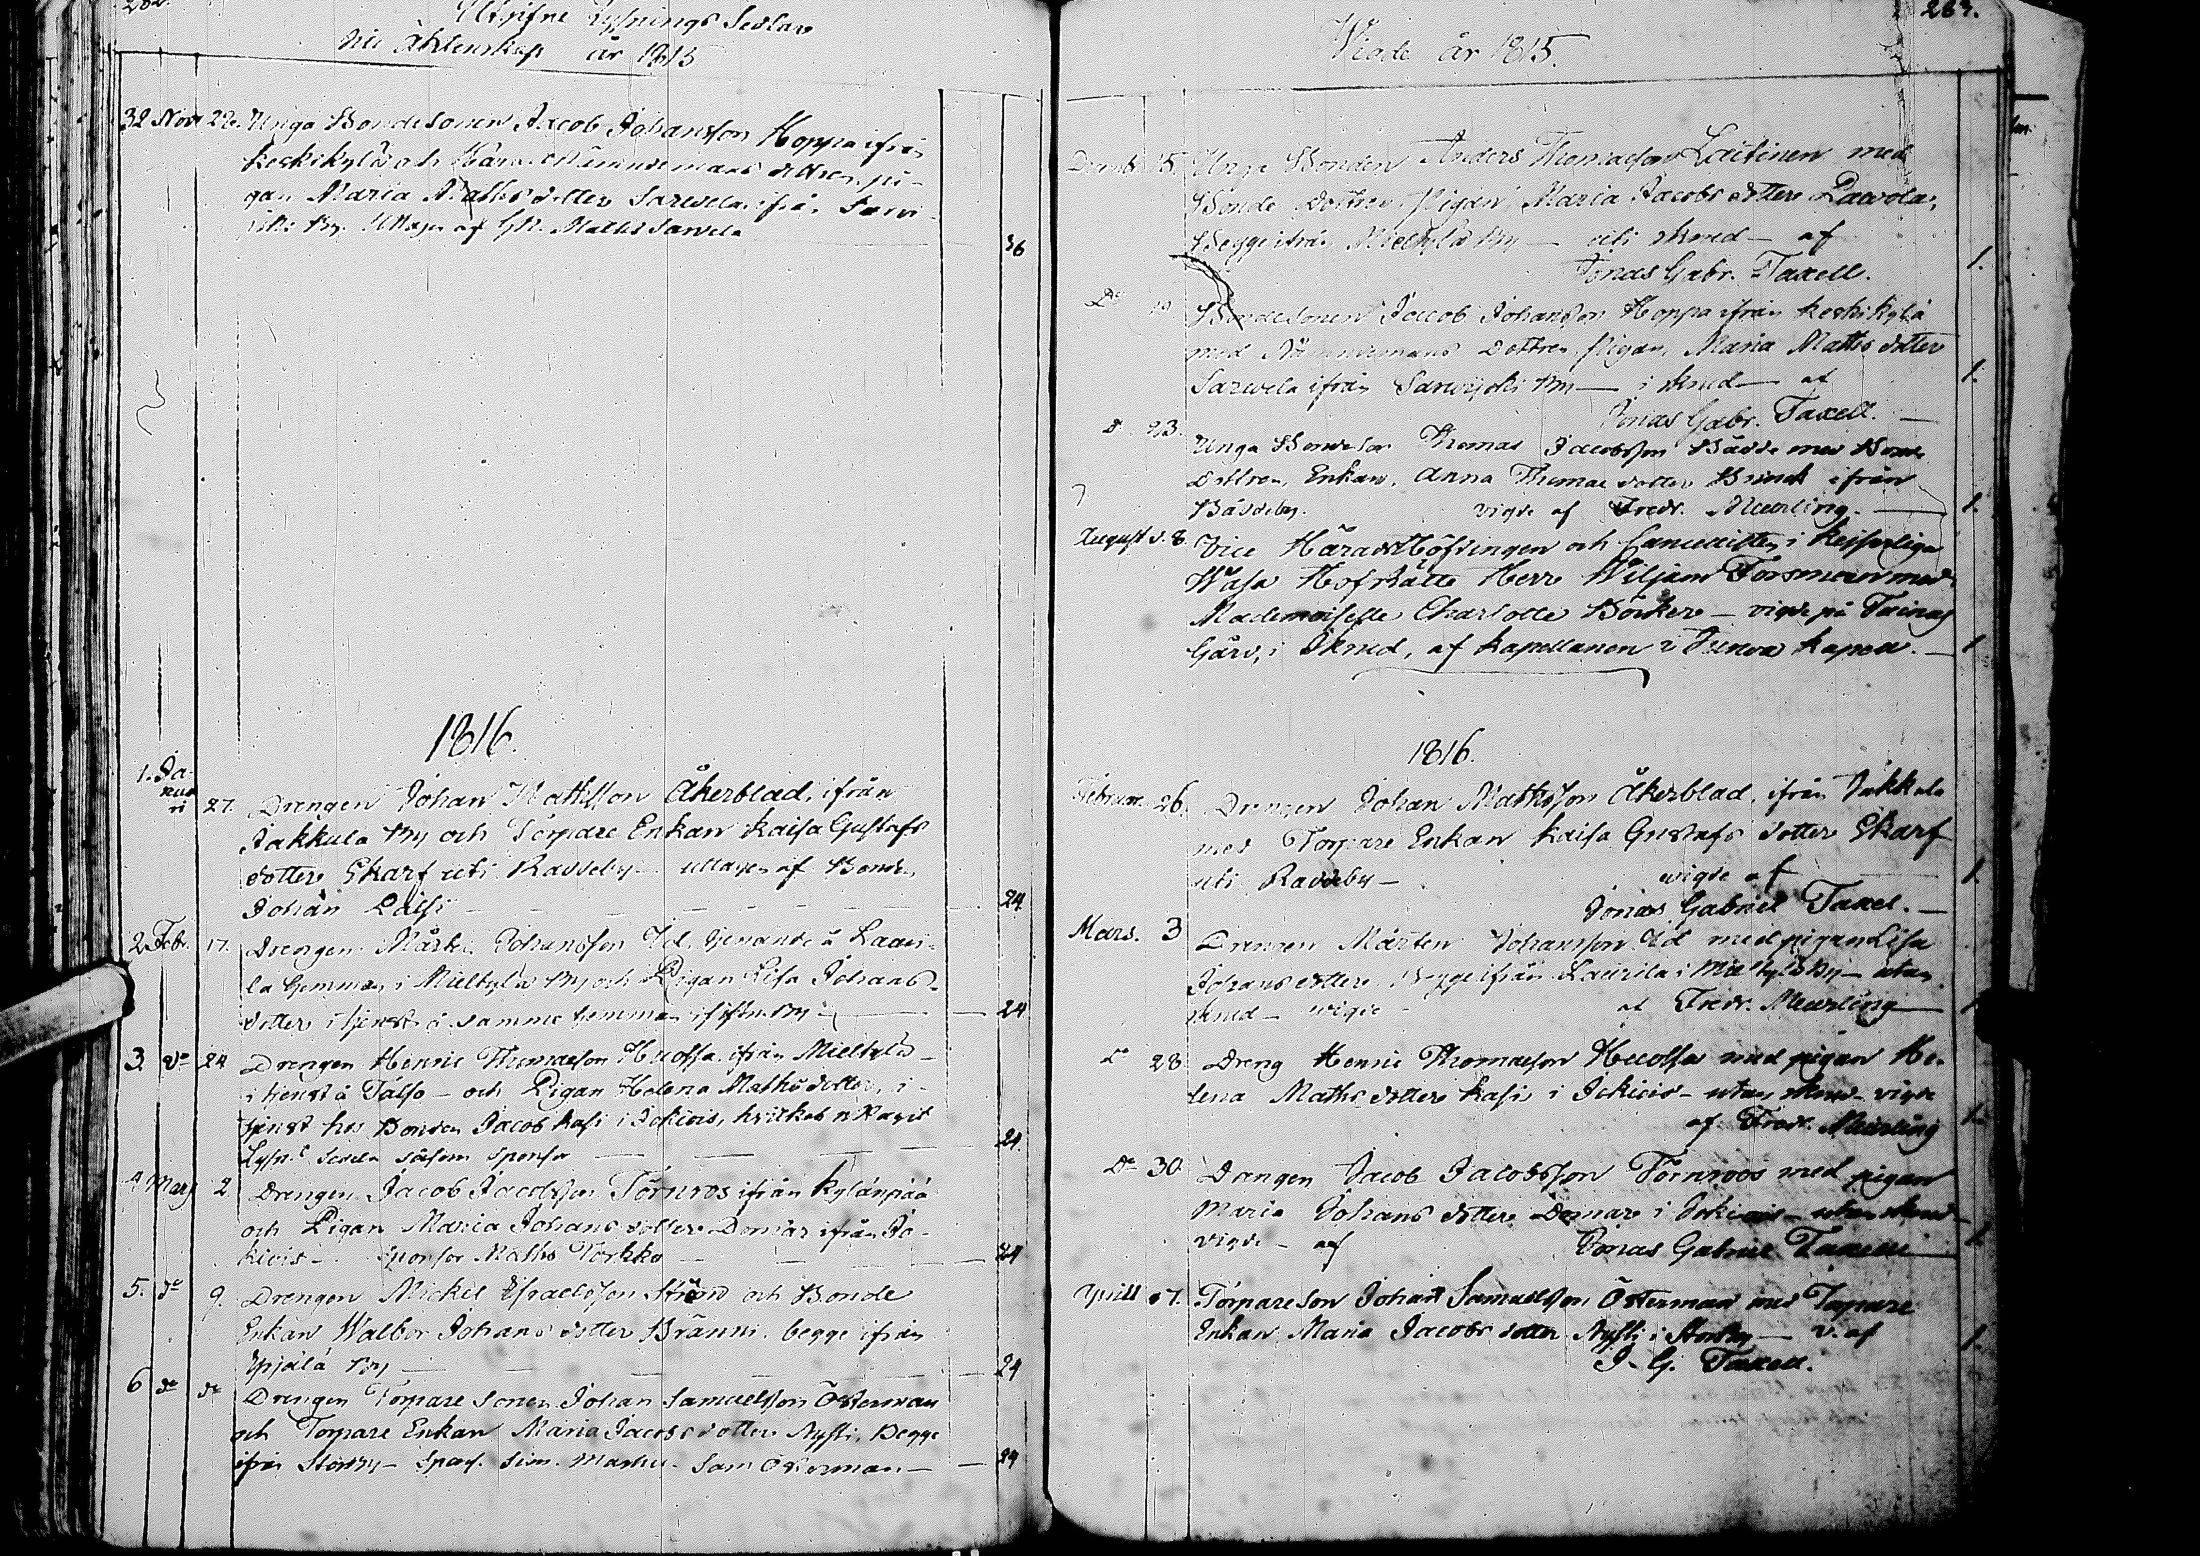 282.
Utgifne Lysnings Sedlar
till Ächtenskap år 1815
32 Nov. 22. Unga Bondesonen Jacob Johansson Hoppa ifrån
Keskikylä och Härads Nämndemans dottren pi-
gan Maria Matts dotter Sarvela ifrån Sarvi-
joki By. Uttagen af GN. Matts Sarvela 36
1816.
1. Januari 27. Drengen Johan Mattsson Åkerblad, ifrån
Jakkula By och Torpare Enkan Kaisa Gustafs
dotter Skarf uti Raddeby uttagen af Bonden
Johan Laisi 24
2. Febr. 17. Drengen Mårten Johansson Id, tjenande å Lauri-
la hemman i Mielkylä By och Pigan Lisa Johans-
dotter i tjenst å samme hemman 24
3. do 24 Drengen Henric Thomasson Huossa ifrån Mielkylä
i tjenst å Talso - och Pigan Helena Matts dotter, i
tjenst hos Bonden Jacob Kasi i Jokicis, hvilken
Lysn. Sedeln såsom sponsor 24.
4 Mars 2 Drengen Jacob Jacobsson Törnroos ifrån Kylänpää
och Pigan Maria Johans dotter Domar ifrån Jo-
kicis - sponsor Matts Torkko 24
5. do 9. Drengen Mickel Israelsson Strand och Bonde
Enkan Walbor Johans dotter Bränni, begge ifrån
By 24
6 do do Drengen Torpare sonen Johan Samuelsson Österman
och Torpare Enkan Maria Jacobs dotter Nysti, Begge
ifrån Storby - Spons. Sam Österman 24
283.
Viade år 1815.
15. Unge Bonden Anders Thomasson Laitinen med
Bonde Dottren Pigan Maria Jacobs dotter Lavola,
Begge ifrån Mielkylä By - uti skrud - af
Jonas Gabr. Taxell. 1.
Do 19 Bondesonen Jacob Johansson Hoppa ifrån Keskikylä
med Nämndemans Dottren, Pigan, Maria Matts dotter
Sarvela ifrån Sarvijoki By - i skrud - af 1.
Jonas Gabr. Taxell.
D. 23. Unga Bondeson Thomas Jacobsson Bådde med Bonde
Dottren, Enkan, Anna Thomas dotter ifrån
Båddeby. vigde af Fredr. Meurling. 1.
August d. 8. Vice Häradshöfdingen och Cancellisten i Kejserliga
Wasa Hofrätte Herr Wiljam Forsman med
Mademoiselle Charlotte Böcker - vigde på Tainus
Gård, i skrud, af Kapellanen i Jurva Kapell. 1
1816.
Februar. 26. Drengen Johan Mattsson Åkerblad, ifrån Jakkula
med Torpare Enkan Kaisa Gustafs dotter Skarf
uti Raddeby - vigde af 1.
Jonas Gabriel Taxel.
Mars. 3 Drengen Mårten Johansson Id med pigan Lisa
Johans dotter, Begge ifrån Laurila i Mielkylä By - utan
skrud - vigde af Fredr. Meurling 1
Do 28 Dreng Henric Thomasson Huossa med pigan He-
lena Matts dotter Kasi i Jokicis - utan skrud - vigde
af Fredr. Meurling 1.
Do 30 Drengen Jacob Jacobsson Törnroos med pigan
Maria Johans dotter Domar i Jokicis - utan skrud -
vigde - af Jonas Gabriel Taxell 1.
April 07. Torpareson Johan Samuelsson Österman med Torpare
Enkan Maria Jacobs dotter Nysti i Storby - v. af 1.
J. G. Taxell.